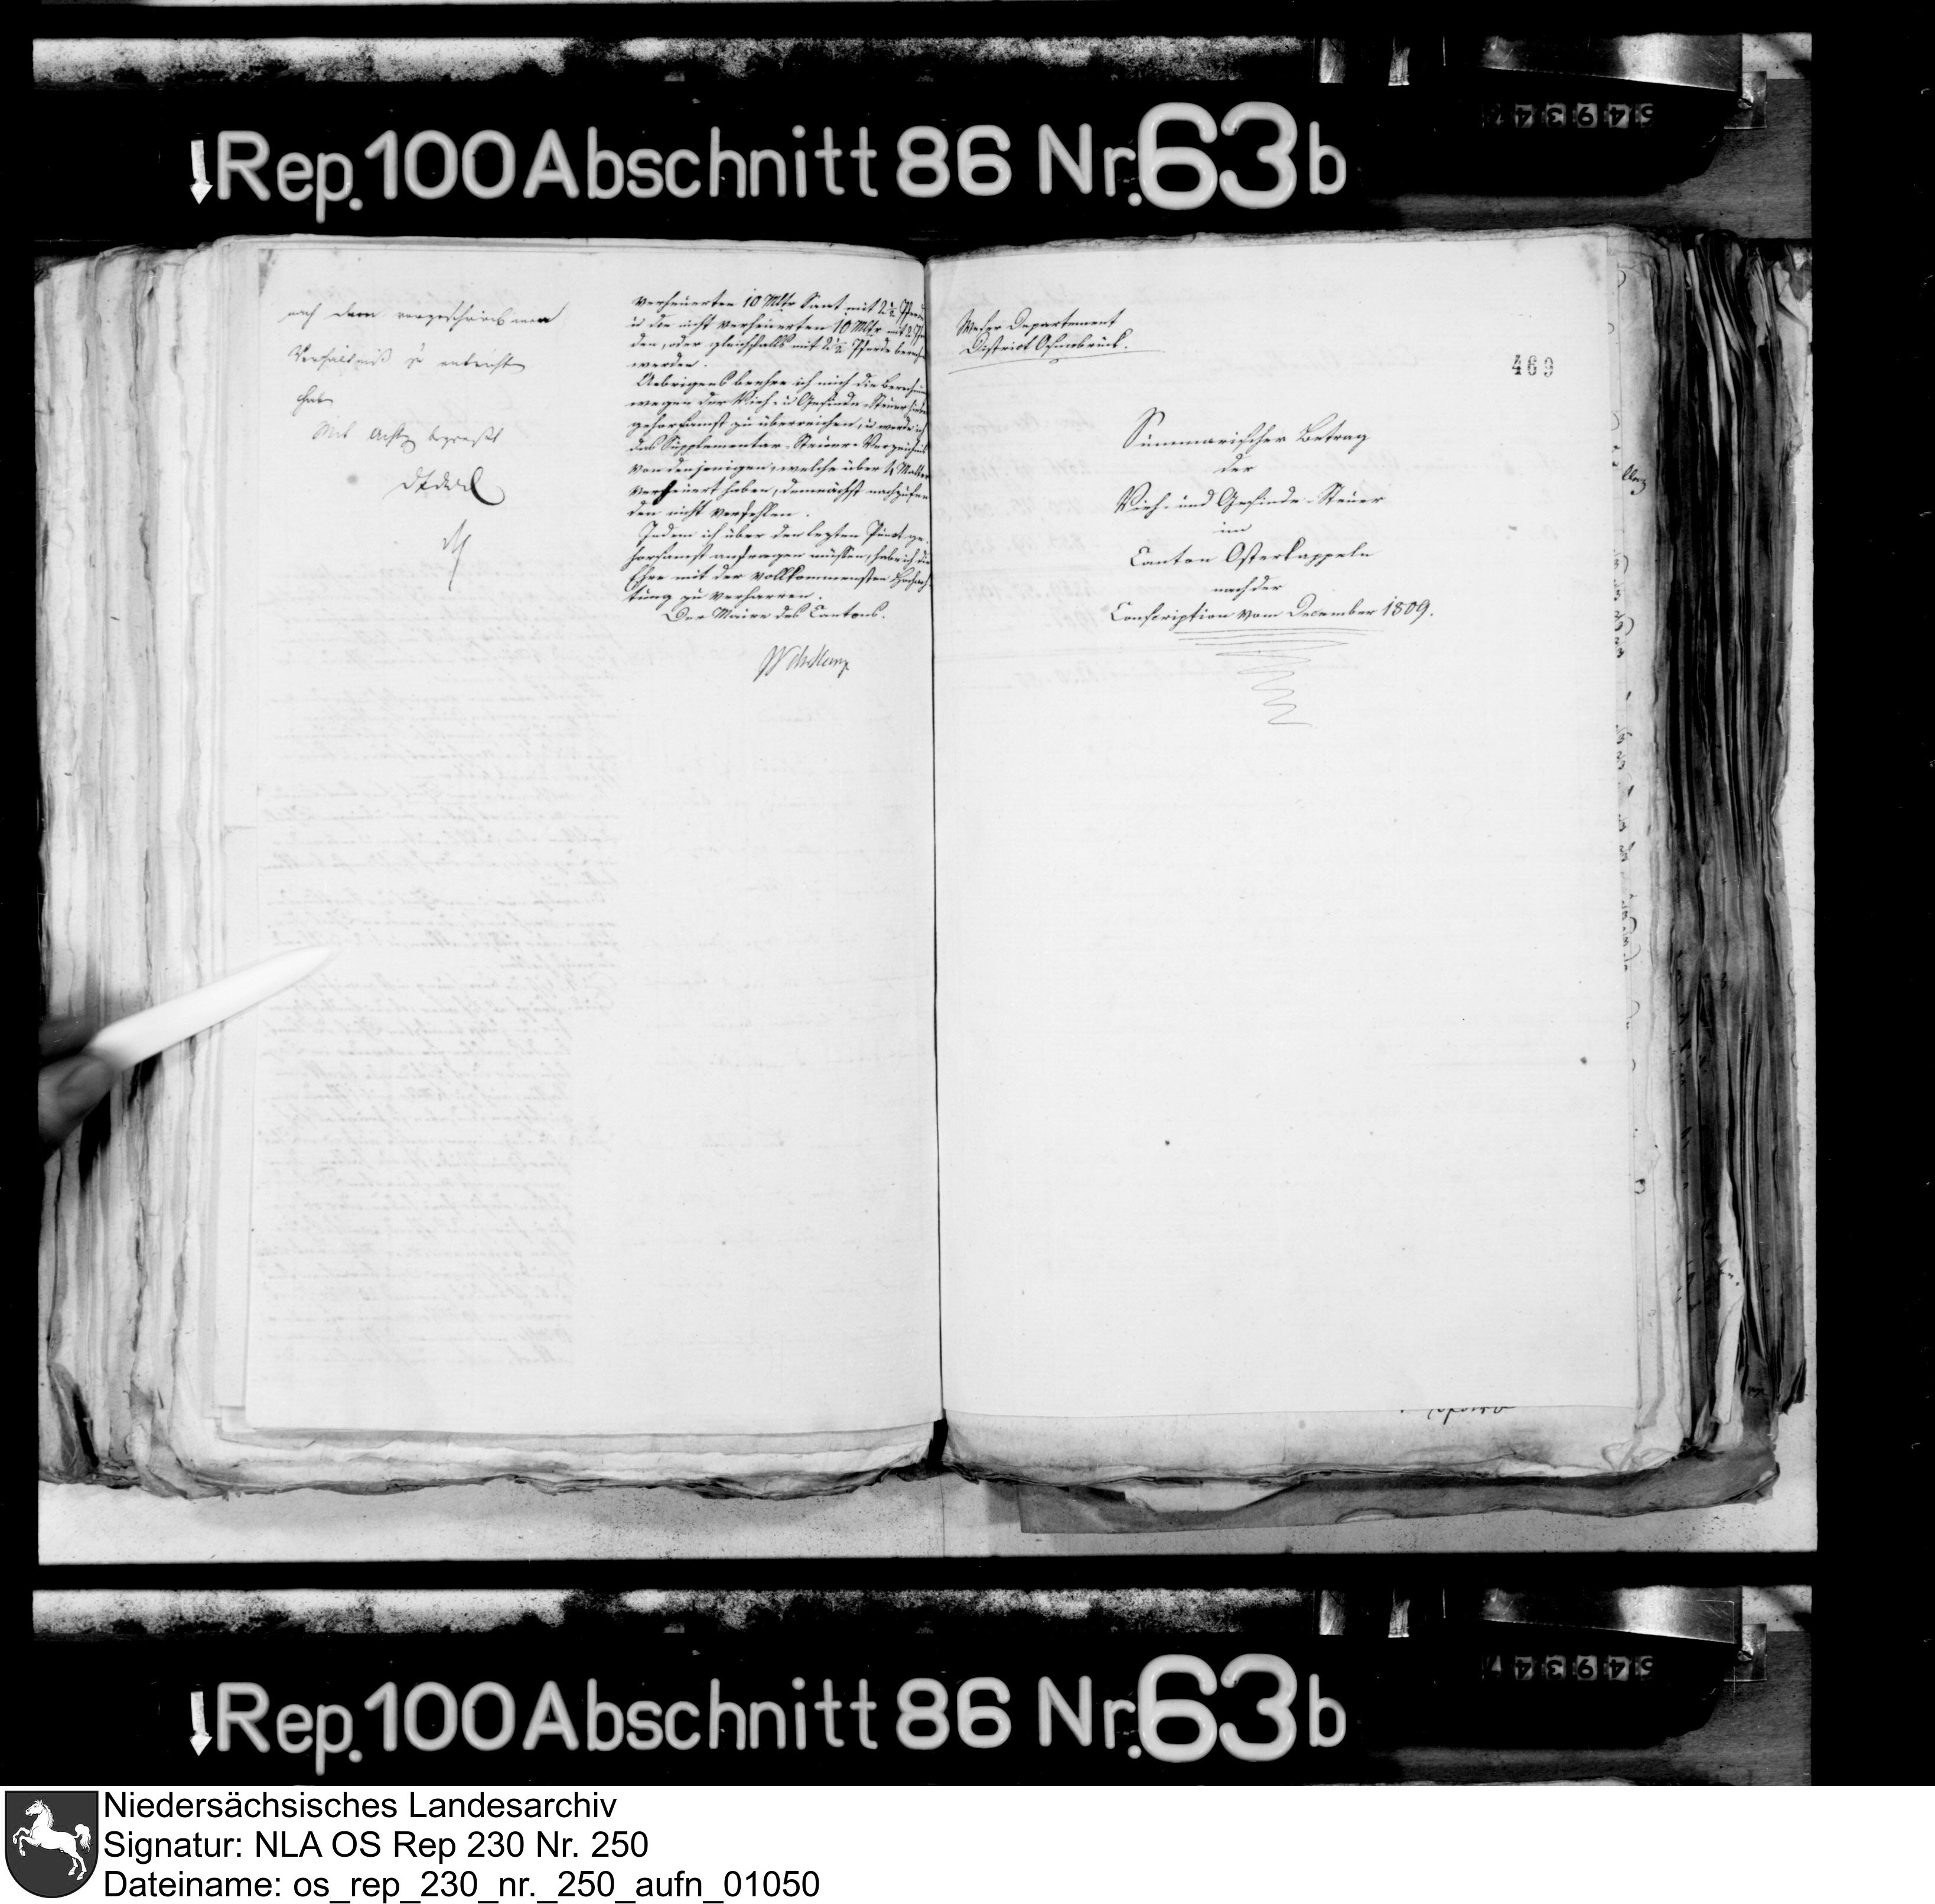 Rep. 100 Abschnitt 86 Nr. 63 b
nach dem vorgeschriebenen
Verhältniß zu entrichten
habe
Mit Achtg begrüßt
verheuerten 10 Mltr Saat mit 2½
u die nicht verheuerten 10 Mltr mit 2
den, oder gleichfalls mit 2½ Pferde
werden.
Uebrigens beehre ich mich die
wegen der Vieh- u Gesinde-Steuer
gehorsamst zu überreichen, u werde ich
das Supplementar-Steuer-Verzeichniß
von denjenigen, welche über ½ Malter
verheuert haben, demnächst
den nicht verfehlen.
Indem ich über den lezten Punct ge-
horsamst anfragen müssen, habe ich die
Ehre mit der vollkommensten Hochach-
tung zu verharren.
Der Maire des Cantons.
Weser Departement
District Osnabrück.
469
Summarischer Betrag
der
Vieh- und Gesinde-Steuer
im
Canton Osterkappeln
nach der
Conscription vom December 1809.
Rep. 100 Abschnitt 86 Nr. 63 b
Niedersächsisches Landesarchiv
Signatur: NLA OS Rep 230 Nr. 250
Dateiname: os_rep_230_nr._250_aufn_01050